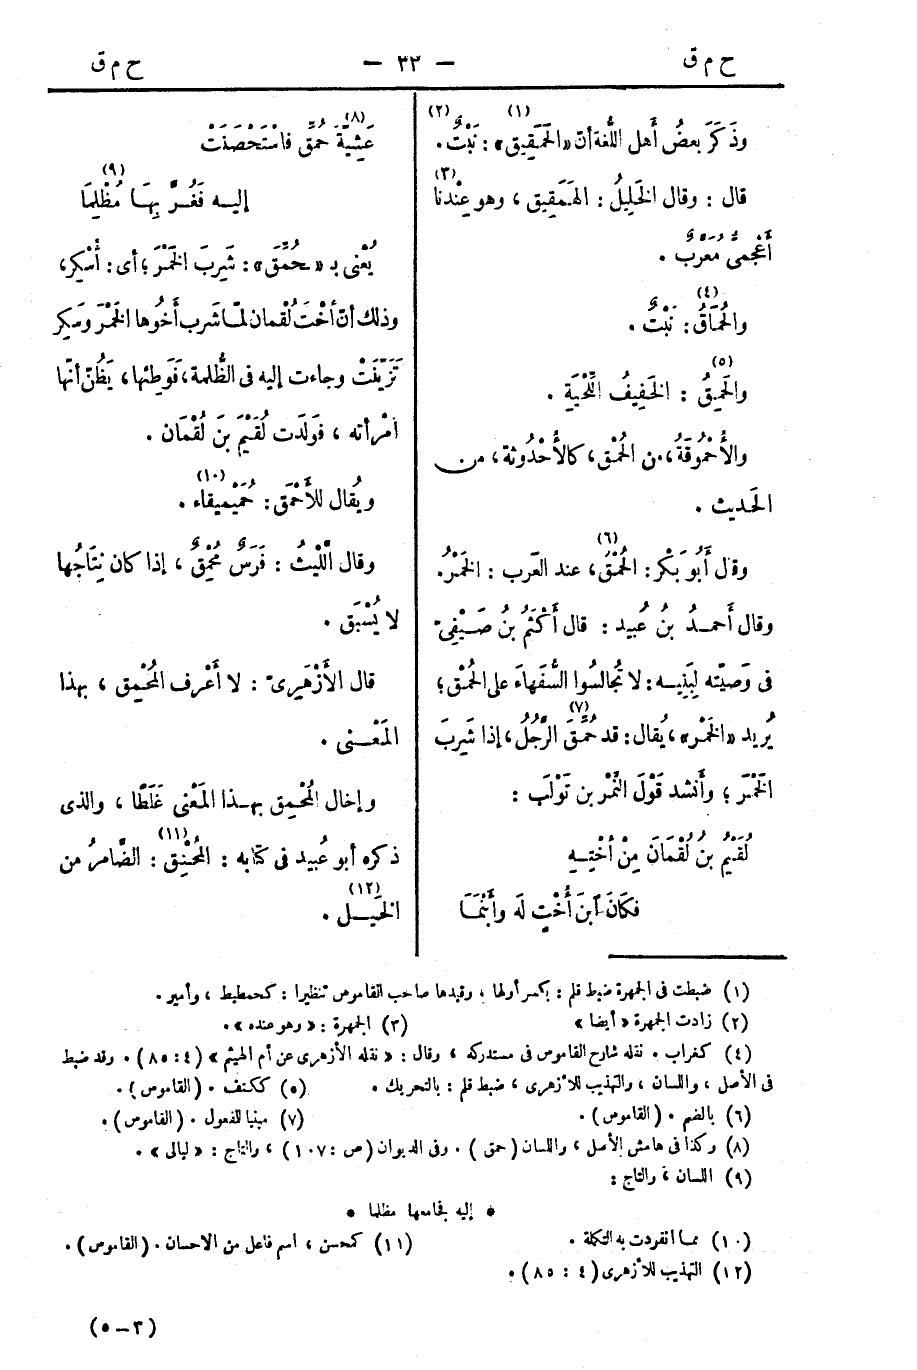 ح م ق
— ٣٣ —
ح م ق
وذَكَرَ بعضُ أهل اللُّغة أنّ «الحَمَقِيق»(١): نَبْتٌ(٢).
قال : وقال الخَلِيلُ : الهَمَقِيق ، وهو عِنْدنا(٣)
أَعْجمى مُعَرَّبٌ .
والحُمَاقُ(٤): نَبْتٌ .
والحَمِقُ(٥) : الخَفِيفُ اللِّحْيَةِ .
والأُحْمُوقَةُ ، من الحُمْق ، كالأُحْدُوثة ، من
الحَديث .
وقال أَبُو بَكْر: الحُمْقُ(٦)، عند العَرب : الخَمْرُ.
وقال أَحمدُ بنُ عُبيد : قال أَكْثَمُ بنُ صَيْفِىّ
فى وَصيّته لِبَنِيه : لا تُجالسُوا السُّفهاءَ على الحُمْق ؛
يُريد «الخَمْر»، يُقال: قد حُمِّقَ(٧) الرَّجُل، إذا شَرِبَ
الخَمْرَ ؛ وأَنشد قَوْلَ النَّمْر بن تَوْلَب :
لُقَيْمُ بنُ لُقْمَانَ مِنْ أُخْتِهِ
فكَانَ ٱبنَ أُخْتٍ لَه وٱبْنَمَا
عَشِيَّةَ حُمِّقَ(٨) فاسْتَحْصَنَتْ
إليه فَغُرَّ بِهَا(٩) مُظْلِمَا
يُعْنى بـ «حُمِّق» : شَرِبَ الخَمْرَ ؛ أى: أُسْكِر،
وذلك أنّ أُخْتَ لُقْمان لمّا شَرب أَخُوها الخَمْرَ وسَكِر
تَزيّنَتْ وجاءت إليه فى الظُّلمة، فَوَطِئها، يَظُنّ أنّها
امْرأته ، فَولَدت لُقَيْمَ بنَ لُقْمَان .
ويُقال للأَحْمَق : حُمَيْمِيقاء(١٠) .
وقال اللّيْثُ : فَرَسٌ مُحْمِقٌ ، إذا كان نِتَاجُها
لا يُسْبَق .
قال الأَزْهَرِىّ : لا أَعْرف المُحْمِق ، بهذا
المَعْنى .
وإخال المُحْمِق بهذا المَعْنى غَلَطًا ، والذى
ذكره أبو عُبيد فى كتابه : المُحْنِق(١١) : الضّامرُ من
الخَيل(١٢) .
(١) ضبطت فى الجمهرة ضبط قلم : بكسر أولها ، وقيدها صاحب القاموس تنظيرا : كحمطيط ، وأمير .
(٢) زادت الجمهرة «أيضا»
(٣) الجمهرة : «وهو عنده» .
(٤) كغراب . نقله شارح القاموس فى مستدركه ، وقال : «نقله الأزهرى عن أم الهيثم» (٤ : ٨٥) . وقد ضبط
فى الأصل ، واللسان ، والتهذيب للأزهرى ، ضبط قلم : بالتحريك .
(٥) ككتف . (القاموس) .
(٦) بالضم . (القاموس) .
(٧) مبنيا للمفعول . (القاموس) .
(٨) وكذا فى هامش الأصل ، واللسان (حمق) . وفى الديوان (ص : ١٠٧) ، والتاج : «ليالى» .
(٩) اللسان ، والتاج :
* إليه فجامعها مظلما *
(١٠) مما انفردت به التكملة .
(١١) كمحسن ، اسم فاعل من الاحسان . (القاموس) .
(١٢) التهذيب للأزهرى (٤ : ٨٥) .
(٣ – ٥)